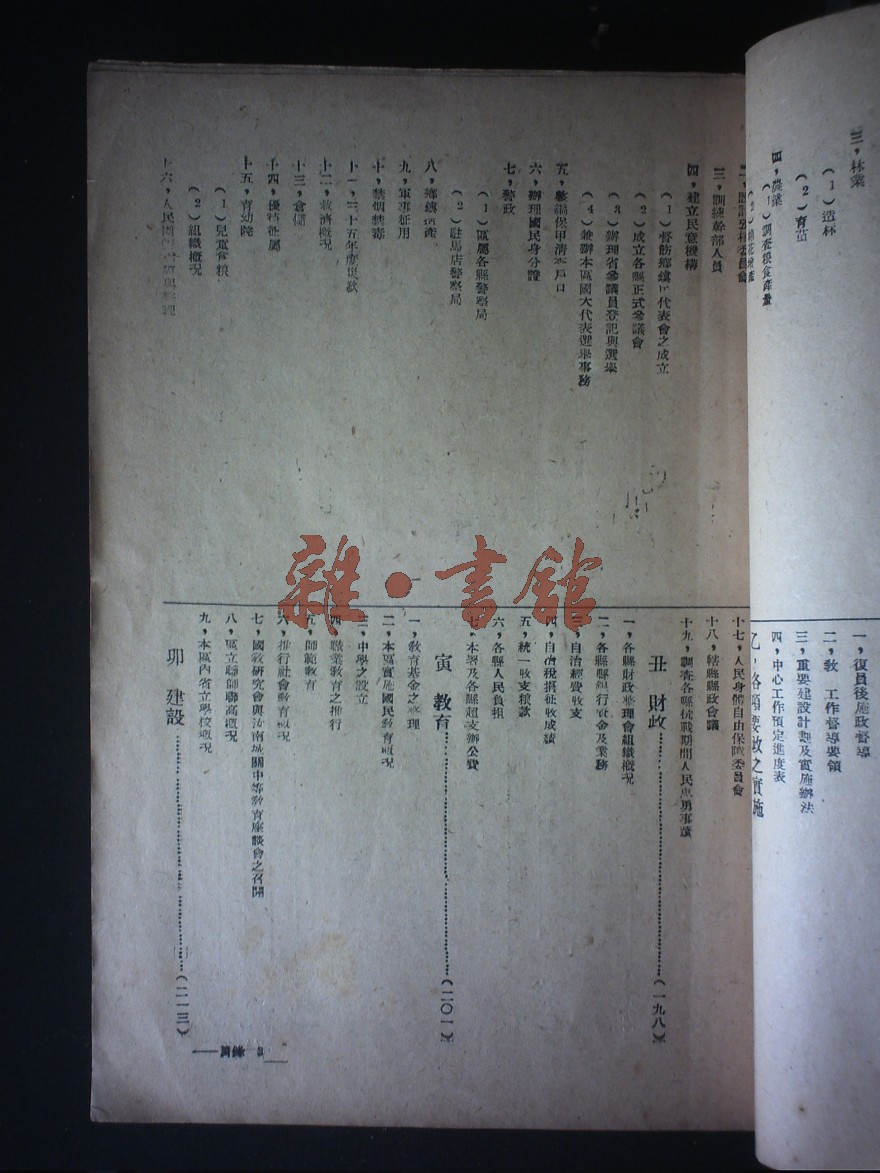 三，林業
（1）造林
（2）育苗
四，農業
（1）調查糧食產量
三，訓練幹部人員
四，建立民意機構
（1）督飭鄉鎮民代表會之成立
（2）成立各縣正式參議會
（3）辦理省參議員登記與選舉
（4）兼辦本區國大代表選舉事務
五，整編保甲清查戶口
六，辦理國民身分證
七，警政
（1）區屬各縣警察局
（2）駐馬店警察局
八，鄉鎮造產
九，軍事征用
十，禁烟禁毒
十一，三十五年度災歉
十二，救濟概況
十三，倉儲
十四，優待征屬
十五，育幼院
（1）兒童食糧
（2）組織概況
十六，人民團體
雜·書館
一，復員後施政督導
二，教 工作督導要領
三，重要建設計劃及實施辦法
四，中心工作預定進度表
之實施
十七，人民身體自由保障委員會
十八，轄縣縣政會議
十九，調查各縣抗戰期間人民忠勇事蹟
丑 財政……（一九八）
一，各縣財政整理會組織概况
二，各縣縣銀行資金及業務
三，自治經費收支
四，自治稅捐征收成績
五，統一收支積欵
六，各縣人民負担
七，本署及各縣超支辦公費
寅 教育……（二〇一）
一，教育基金之整理
二，本區實施國民教育概况
三，中學之設立
四，職業教育之推行
五，師範教育
六，推行社會教育概况
七，國教研究會與汝南城關中等教育座談會之召開
八，區立聯師聯高概况
九，本區內省立學校概况
卯 建設……（二一三）
目錄